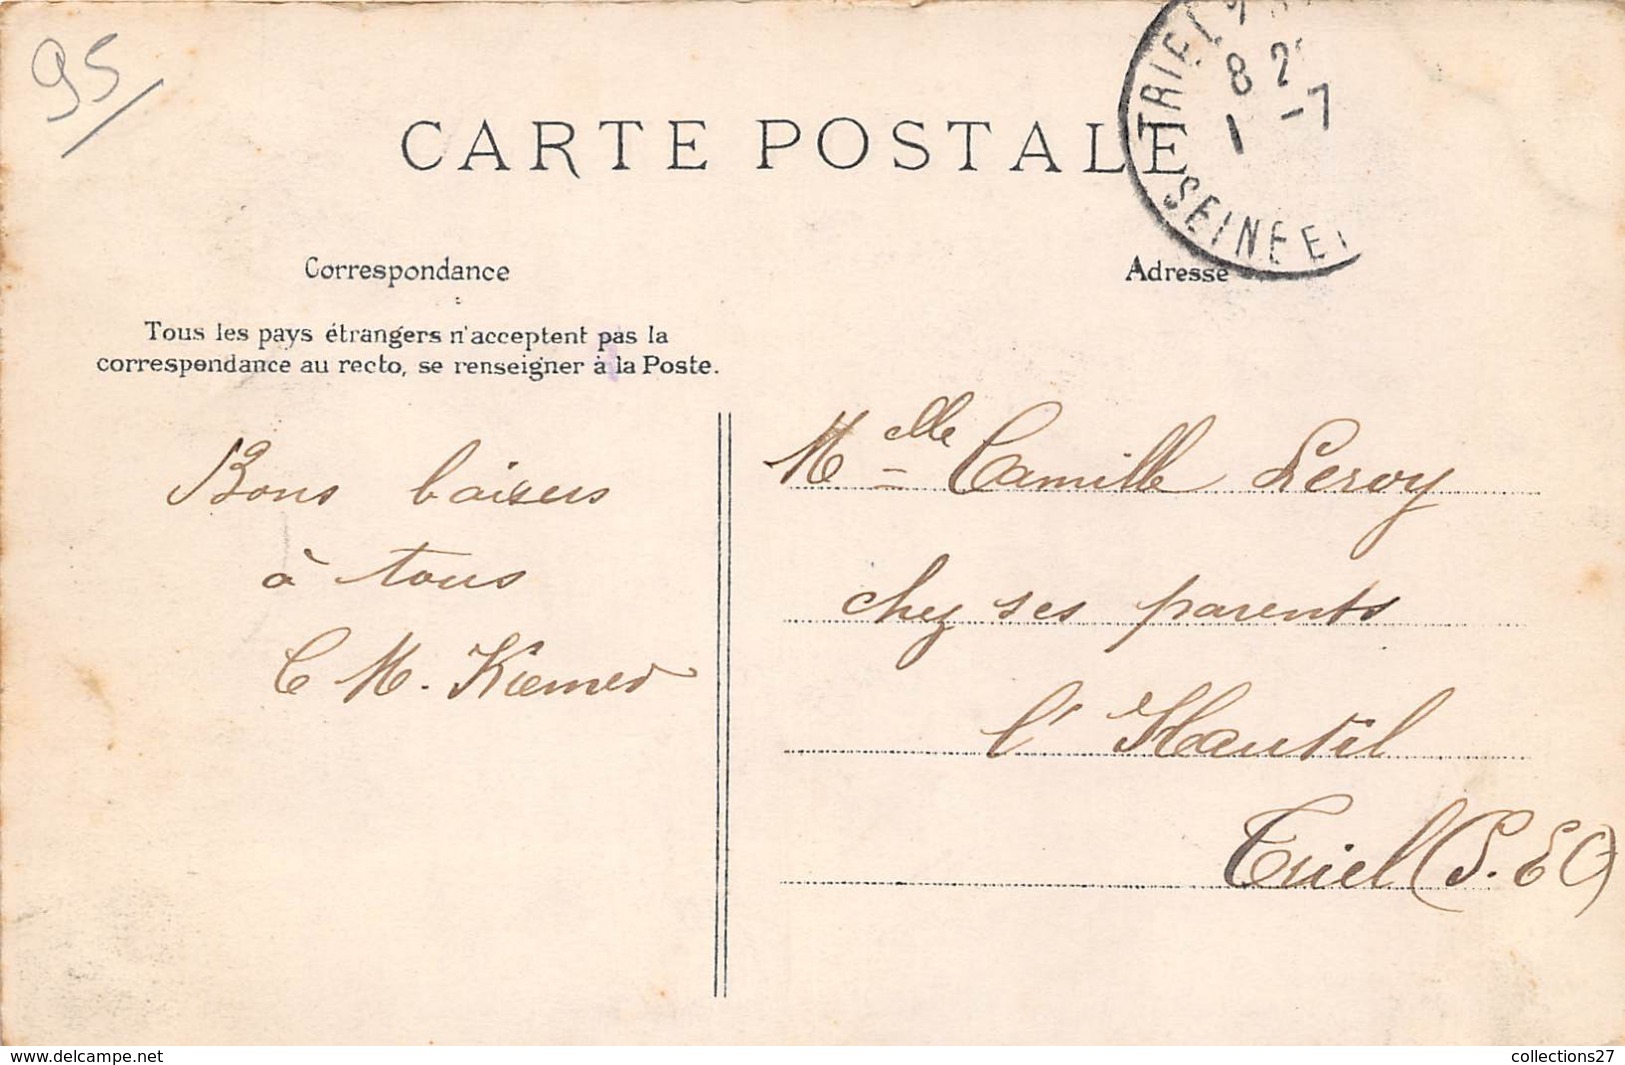 95
TRIEL
8 2
1 -7
SEINE ET
CARTE POSTALE
Correspondance
Adresse
Tous les pays étrangers n'acceptent pas la
correspondance au recto, se renseigner à la Poste.
Bons baisers
à tous
C M.
Melle Camille Leroy
chez ses parents
l'Hautil
Triel (S. & O)
www.delcampe.net
collections27